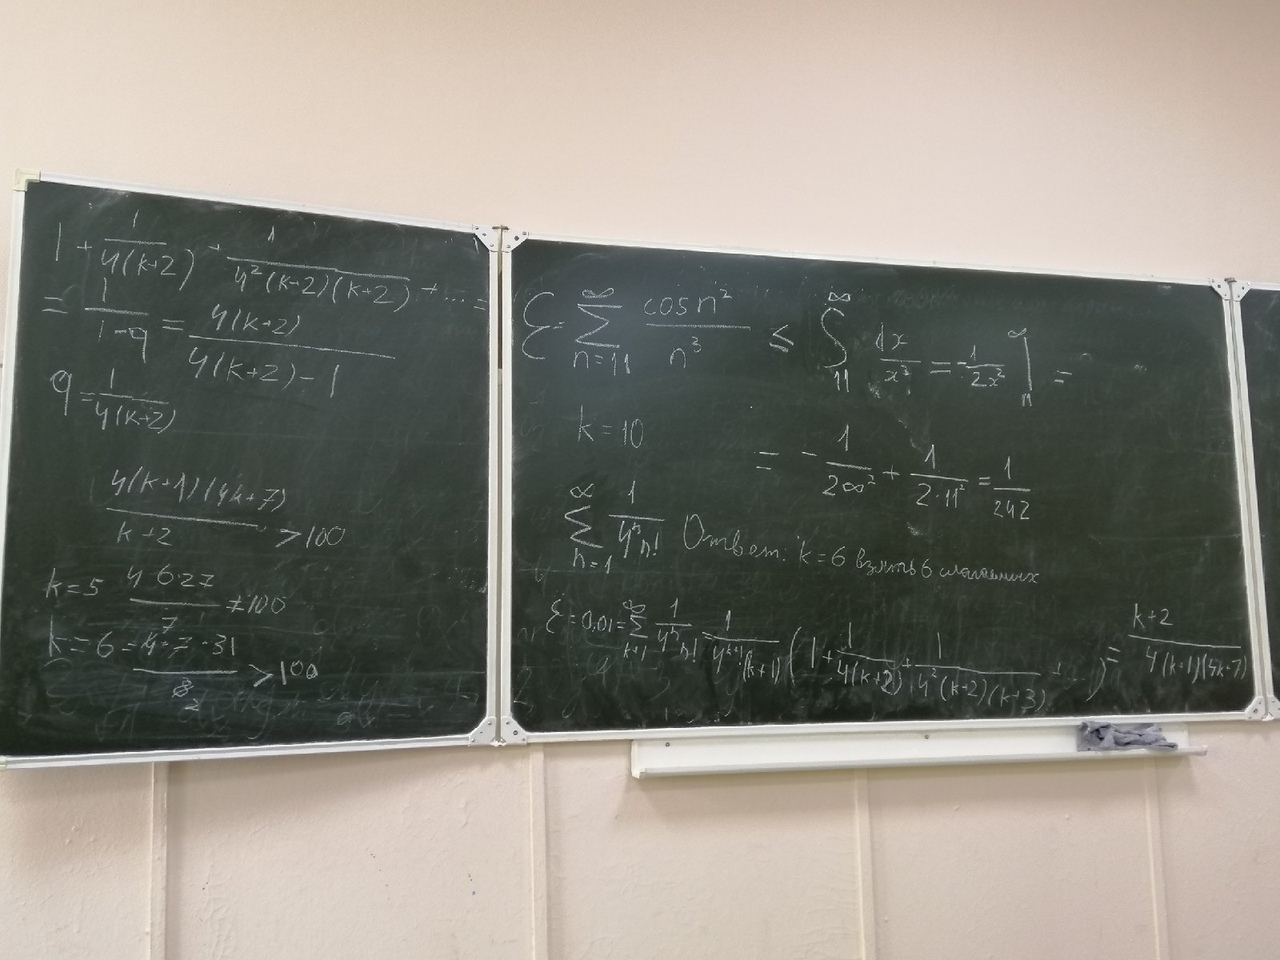 1 + 1/4(k+2) + 1/4²(k+2)(k+2) + ... =
= 1/1-q = 4(k+2)/4(k+2)-1
q = 1/4(k+2)
4(k+1)(4k+7)/k+2 > 100
k=5 4·6·27/7 ≠ 100
k=6 = 4·7·31/8 > 100
2
ε = ∑ n=11 ∞ cos n²/n³ ≤ ∫ 11 ∞ dx/x³ = -1/2x² | 11 ∞ =
k=10
= -1/2∞² + 1/2·11² = 1/242
∑ n=1 ∞ 1/4ⁿn! Ответ: k=6 взять 6 слагаемых
ε = 0,01 = ∑ k+1 ∞ 1/4ⁿn! = 1/4ᵏ⁺¹(k+1) (1 + 1/4(k+2) + 1/4²(k+2)(k+3) + ...) = k+2/4(k+1)(4k+7)